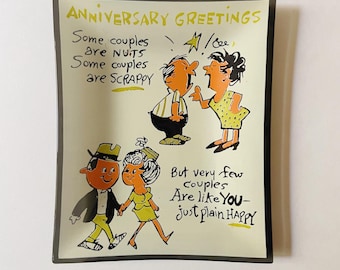 ANNIVERSARY GREETINGS
Some couples
are NUTS
Some couples
are SCRAPPY
But very few
couples
Are like YOU—
just plain HAPPY